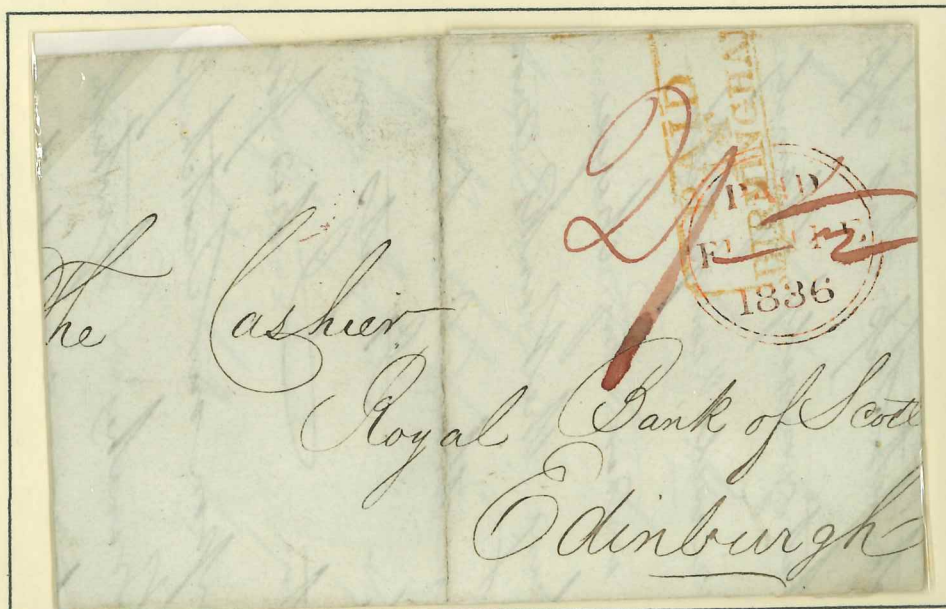 PAID
AT
2/
PAID
1836
The Cashier
Royal Bank of Scotl
Edinburgh